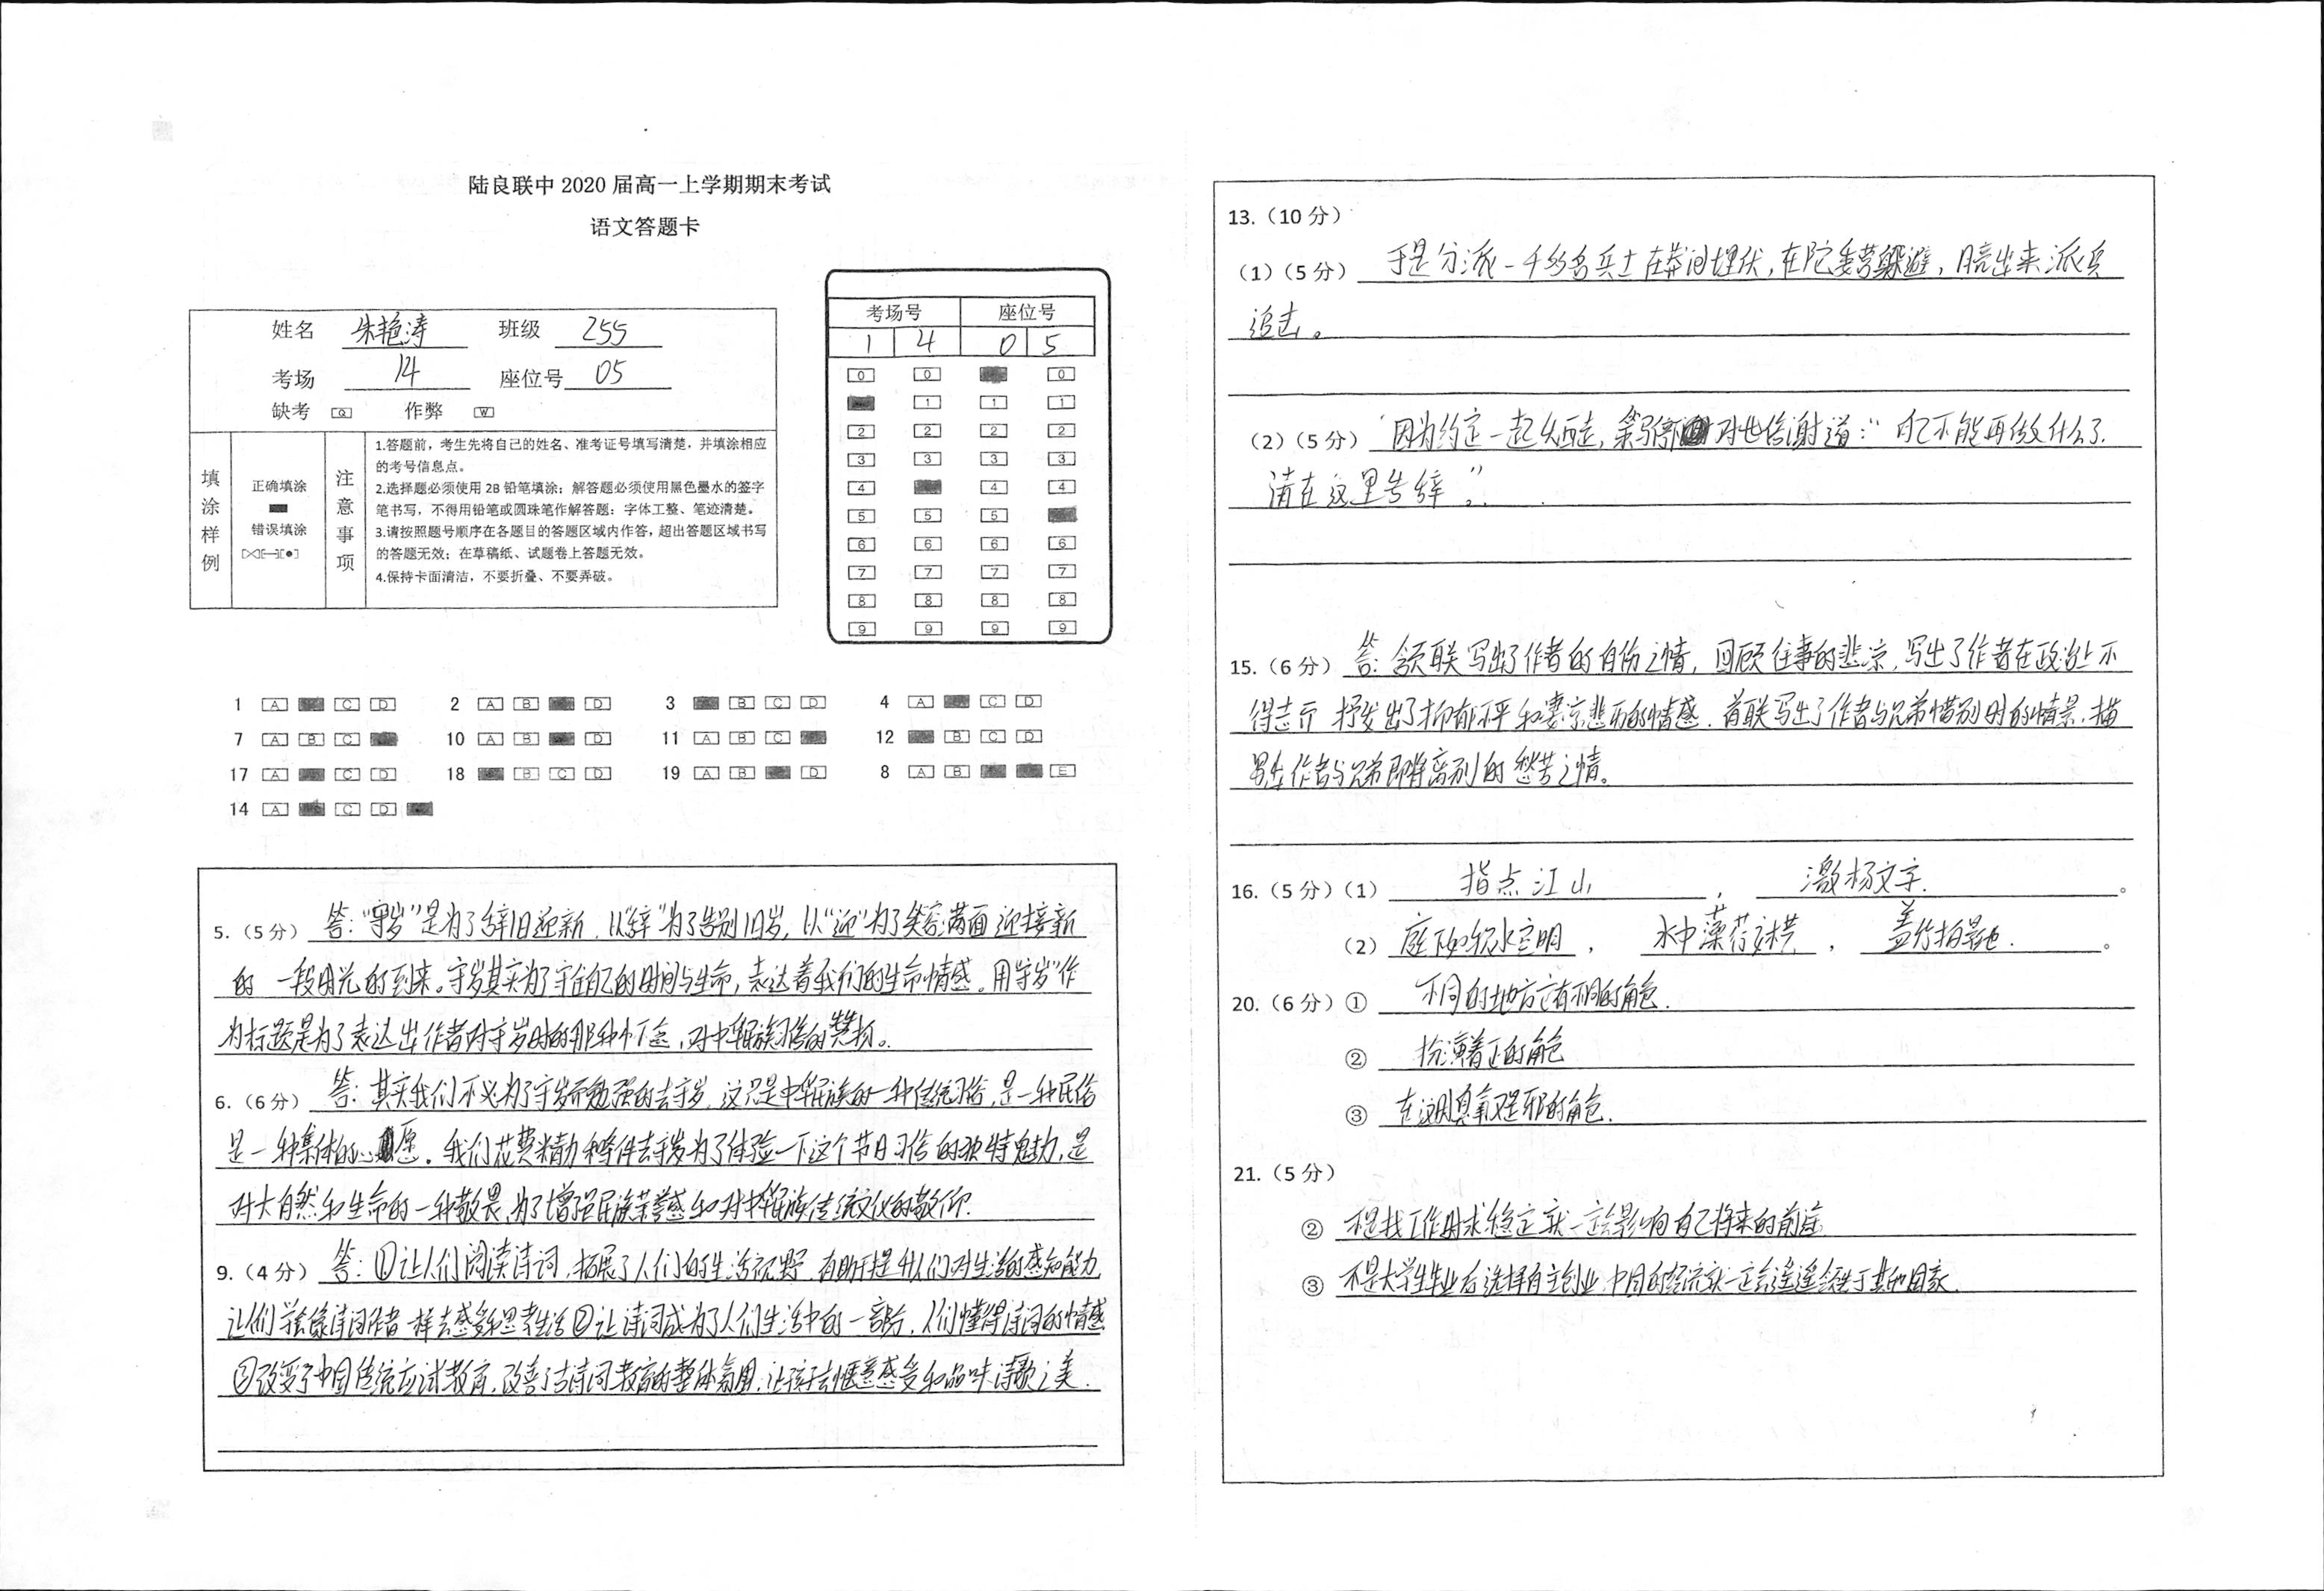 陆良联中 2020 届高一上学期期末考试
语文答题卡
姓名 朱艳涛 班级 255
考场 14 座位号 05
缺考 [Q] 作弊 [W]
填涂样例
正确填涂
错误填涂
注意事项
1.答题前，考生先将自己的姓名、准考证号填写清楚，并填涂相应
的考号信息点。
2.选择题必须使用 2B 铅笔填涂；解答题必须使用黑色墨水的签字
笔书写，不得用铅笔或圆珠笔作解答题；字体工整、笔迹清楚。
3.请按照题号顺序在各题目的答题区域内作答，超出答题区域书写
的答题无效；在草稿纸、试题卷上答题无效。
4.保持卡面清洁，不要折叠、不要弄破。
考场号 座位号
1 4 0 5
0 0 0
1 1 1
2 2 2 2
3 3 3 3
4 4 4
5 5 5
6 6 6 6
7 7 7 7
8 8 8 8
9 9 9 9
1 A C D 2 A B D 3 B C D 4 A C D
7 A B C 10 A B D 11 A B C 12 B C D
17 A C D 18 B C D 19 A B D 8 A B E
14 A C D
5.（5 分） 答："守岁"是为了辞旧迎新，以"辞"为了告别旧岁，以"迎"为了笑容满面迎接新
的一段时光的到来。守岁其实为了守住自己的时间与生命，表达着我们的生命情感。用"守岁"作
为标题是为了表达出作者对守岁时的那种心态，对中华民族习俗的赞扬。
6.（6 分） 答：其实我们不必为了守岁而勉强的去守岁，这只是中华民族的一种传统习俗，是一种民俗
是一种集体的心愿。我们花费精力和条件去守岁为了体验一下这个节日习俗的独特魅力，是
对大自然和生命的一种敬畏，为了增强民族荣誉感和对中华民族传统文化的敬仰.
9.（4 分） 答：①让人们阅读诗词，拓展了人们的生活视野，有助于提升人们对生活的感知能力
让人们学会像诗词作者一样去感受和思考生活②让诗词成为了人们生活中的一部分，人们懂得诗词的情感
③改变了中国传统应试教育，改善了古诗词教育的整体氛围，让孩子去惬意感受和品味诗歌之美.
13.（10 分）
（1）（5 分） 于是分派一千多名兵士在莽间埋伏，在陀垒营躲避，月亮出来派兵
追击。
（2）（5 分） 因为约定一起么西走，对也信谢道："自己不能再做什么了.
请在这里告辞。"
15.（6 分） 答：颔联写出了作者的自伤之情，回顾往事的悲凉，写出了作者在政治上不
得志而抒发出了抑郁不平和凄凉悲苦的情感. 首联写出了作者与兄弟惜别时的情景，描
写出作者与兄弟即将离别的愁苦之情。
16.（5 分）（1） 指点江山 ， 激扬文字. 。
（2） 庭下如积水空明 ， 水中藻荇交横 ， 盖竹柏影也. 。
20.（6 分）① 不同的地方它有不同的角色.
② 扮演着正的角色
③ 在这则臭氧又是邪的角色.
21.（5 分）
② 不是找工作时求稳定就一定会影响自己将来的前途
③ 不是大学生毕业后选择自主创业，中国的经济就一定会遥遥领先于其他国家.